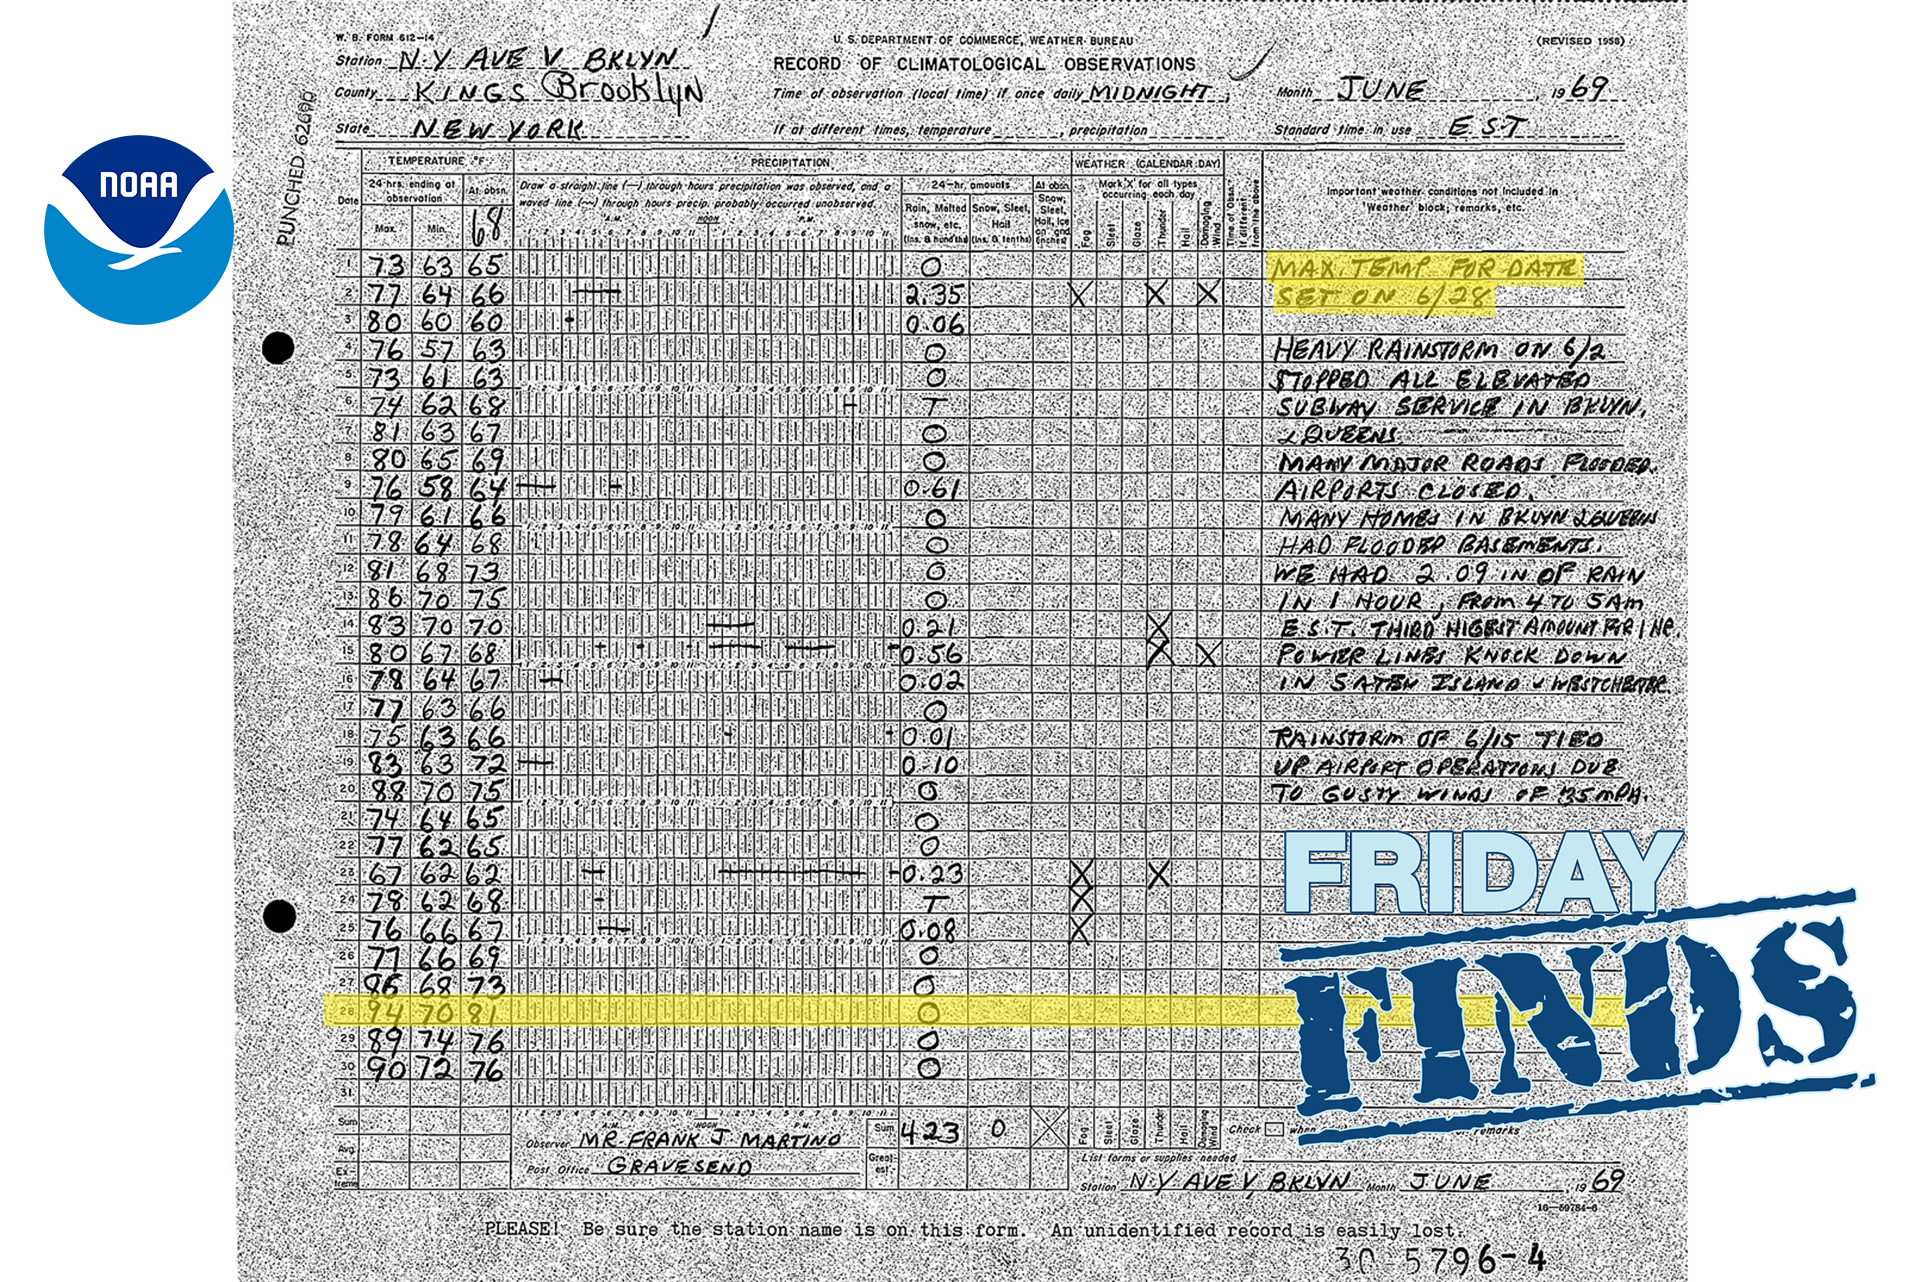 W. B. FORM 612-14
U. S. DEPARTMENT OF COMMERCE, WEATHER BUREAU
(REVISED 1958)
Station N.Y AVE V BKLYN
RECORD OF CLIMATOLOGICAL OBSERVATIONS
County KINGS Brooklyn
Time of observation (local time) if once daily MIDNIGHT,
Month JUNE, 1969
State NEW YORK
If at different times, temperature , precipitation
Standard time in use EST
PUNCHED
NOAA
TEMPERATURE °F
PRECIPITATION
WEATHER (CALENDAR DAY)
Date
24 hrs. ending at observation
At obsn.
Draw a straight line (—) through hours precipitation was observed, and a
waved line (~~) through hours precip. probably occurred unobserved.
24-hr. amounts
At obsn.
Mark 'X' for all types occurring each day
Time of Obsn. if different from the above
Important weather conditions not included in 'Weather' block; remarks, etc.
Max. Min. 68
A.M. NOON P.M.
Rain, Melted snow, etc. (Ins. & hundths)
Snow, Sleet, Hail (Ins. & tenths)
Snow, Sleet, Hail, Ice on gnd. (inches)
Fog Sleet Glaze Thunder Hail Damaging Wind
1 2 3 4 5 6 7 8 9 10 11 1 2 3 4 5 6 7 8 9 10 11
1 73 63 65 0 MAX. TEMP FOR DATE
2 77 64 66 2.35 X X X SET ON 6/28
3 80 60 60 0.06
4 76 57 63 0 HEAVY RAINSTORM ON 6/2
5 73 61 63 0 STOPPED ALL ELEVATED
6 74 62 68 T SUBWAY SERVICE IN BKLYN.
7 81 63 67 0 & QUEENS
8 80 65 69 0 MANY MAJOR ROADS FLOODED.
9 76 58 64 0.61 AIRPORTS CLOSED.
10 79 61 66 0 MANY HOMES IN BKLYN & QUEENS
11 78 64 68 0 HAD FLOODED BASEMENTS.
12 81 68 73 0 WE HAD 2.09 IN OF RAIN
13 86 70 75 0 IN 1 HOUR, FROM 4 TO 5AM
14 83 70 70 0.21 X E.S.T. THIRD HIGEST AMOUNT FOR 1 HR.
15 80 67 68 0.56 X X POWER LINES KNOCK DOWN
16 78 64 67 0.02 IN SATEN ISLAND & WESTCHESTER.
17 77 63 66 0
18 75 63 66 0.01 RAINSTORM OF 6/15 TIED
19 83 63 72 0.10 UP AIRPORT OPERATIONS DUE
20 88 70 75 0 TO GUSTY WINDS OF 35MPH.
21 74 64 65 0
22 77 62 65 0
23 67 62 62 0.23 X X
24 78 62 68 T X
25 76 66 67 0.08 X
26 77 66 69 0
27 86 68 73 0
28 94 70 81 0
29 89 74 76 0
30 90 72 76 0
31
FRIDAY
FINDS
Sum
Observer MR. FRANK J MARTINO
Sum 4.23 0
Fog Sleet Glaze Thunder Hail Damaging Wind
Check when remarks
Avg.
Extreme
Post Office GRAVESEND
Greatest
List forms or supplies needed
Station N.Y AVE V, BKLYN Month JUNE, 1969
16—59784-6
PLEASE! Be sure the station name is on this form. An unidentified record is easily lost.
30-5796-4